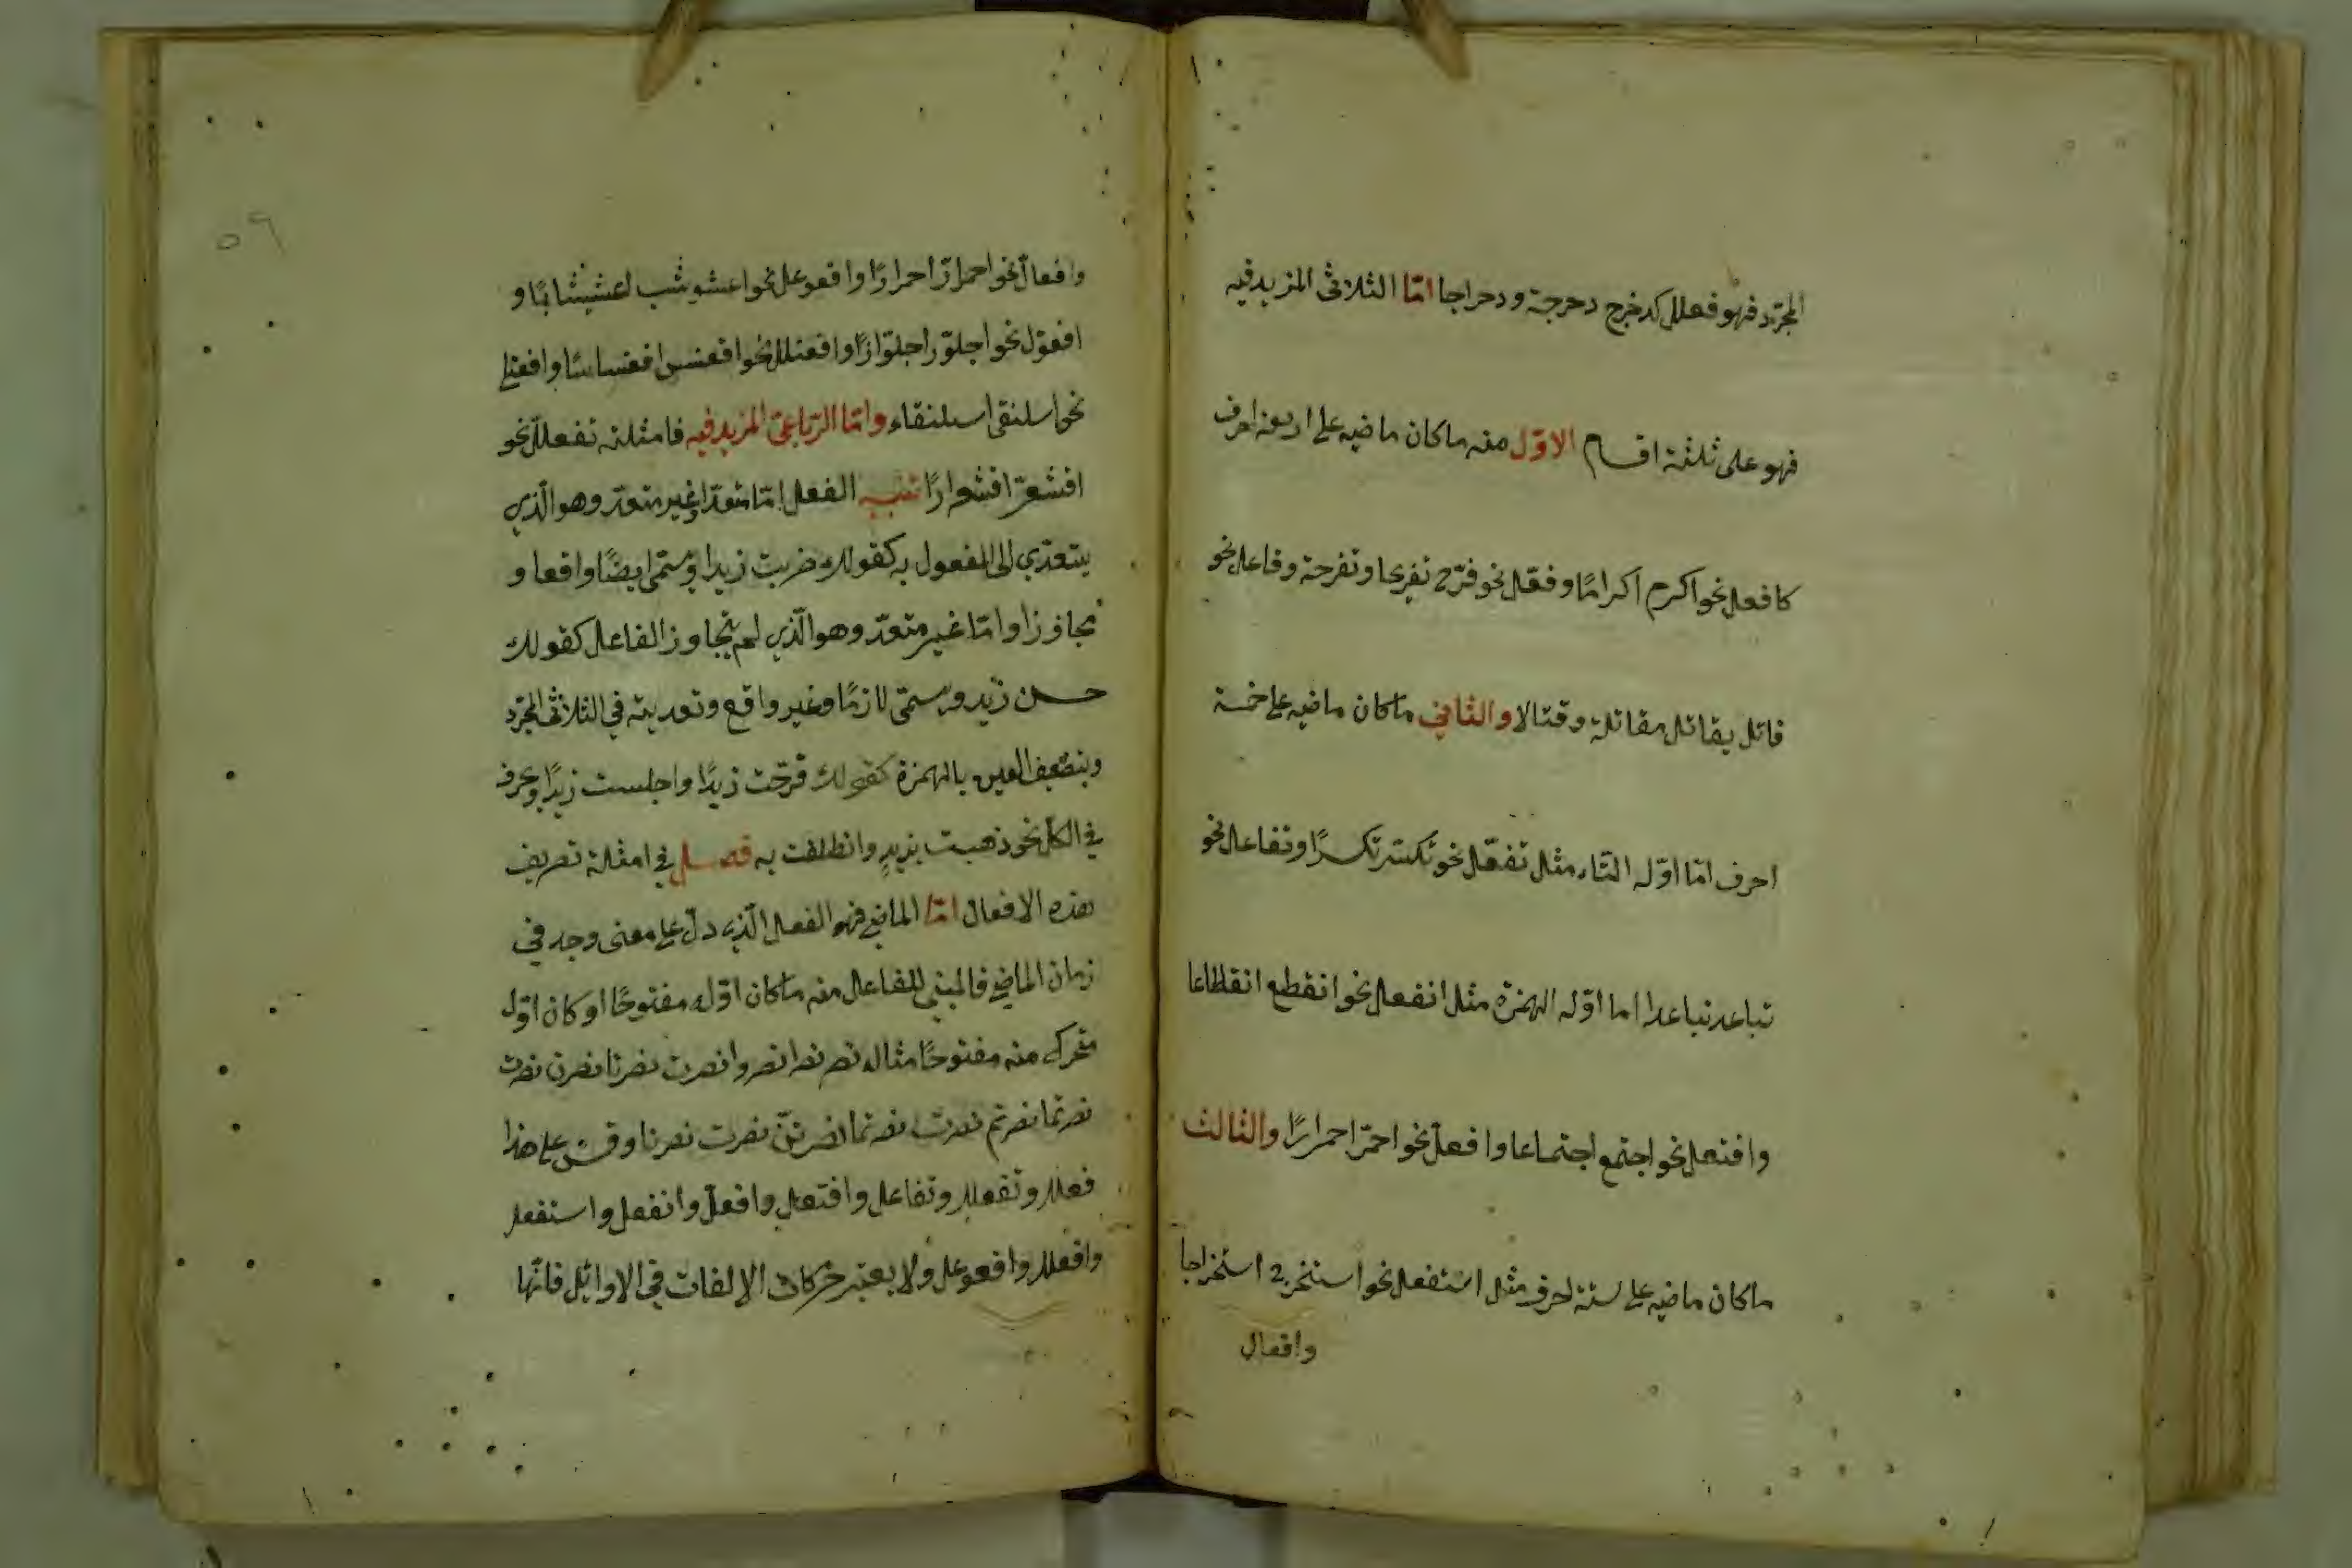 المجرّد فهو فعلل كدحرج دحرجة ودحراجا امّا الثلاثى المزيد فيه
فهو على ثلثة اقسام الاوّل منه ما كان ماضيه على اربعة احرف
كافعل نحو اكرم اكرامًا وفعّل نحو فرّح تفريحا وتفرحة وفاعل نحو
قاتل يقاتل مقاتلة وقتالا والثاني ما كان ماضيه على خمسة
احرف امّا اوّله التاء مثل تفعّل نحو تكسّر تكسرًا وتفاعل نحو
تباعد تباعدا اما اوّله الهمزة مثل انفعل نحو انقطع انقطاعا
وافتعل نحو اجتمع اجتماعا وافعلّ نحو احمرّ احمرارًا والثالث
ما كان ماضيه على ستة احرف مثل استفعل نحو استخرج استخراجا
وافعال
٥٩
وافعالّ نحو احمارّ احمرارًا وافعوعل نحو اعشوشب اعشيشابًا و
افعوّل نحو اجلوّز اجلوّازًا وافعنلل نحو اقعنسس اقعنساسًا وافعنلى
نحو اسلنقى اسلنقاء وامّا الرّباعىّ المزيد فيه فامثلته تفعلل نحو
اقشعرّ اقشعرارًا تنبيه الفعل امّا متعدّ او غير متعدّ وهو الّذي
يتعدّي الى المفعول به كقولك ضربت زيدا ويسمّى ايضًا واقعا و
مجاوزا وامّا غير متعدّ وهو الّذي لم يتجاوز الفاعل كقولك
حسن زيد ويسمّى لازمًا وغير واقع وتعديته في الثلاثى المجرّد
وبتضعيف العين بالهمزة كقولك فرّحت زيدًا واجلست زيدًا وبحرف
في الكلّ نحو ذهبت بزيدٍ وانطلقت به فصل في امثلة تصريف
هذه الافعال امّا الماضي فهو الفعل الّذي دلّ على معنى وجد في
زمان الماضي فالمبني للفاعل منه ما كان اوّله مفتوحًا او كان اوّل
متحرك منه مفتوحًا مثاله نصر نصرا نصروا نصرت نصرتا نصرن نصرت
نصرتما نصرتم نصرت نصرتما نصرتنّ نصرت نصرنا وقس على هذا
فعلل وتفعلل وتفاعل وافتعل وافعلّ وانفعل واستفعل
وافعلل وافعوعل ولا يعتبر حركات الالفات في الاوائل فانّها